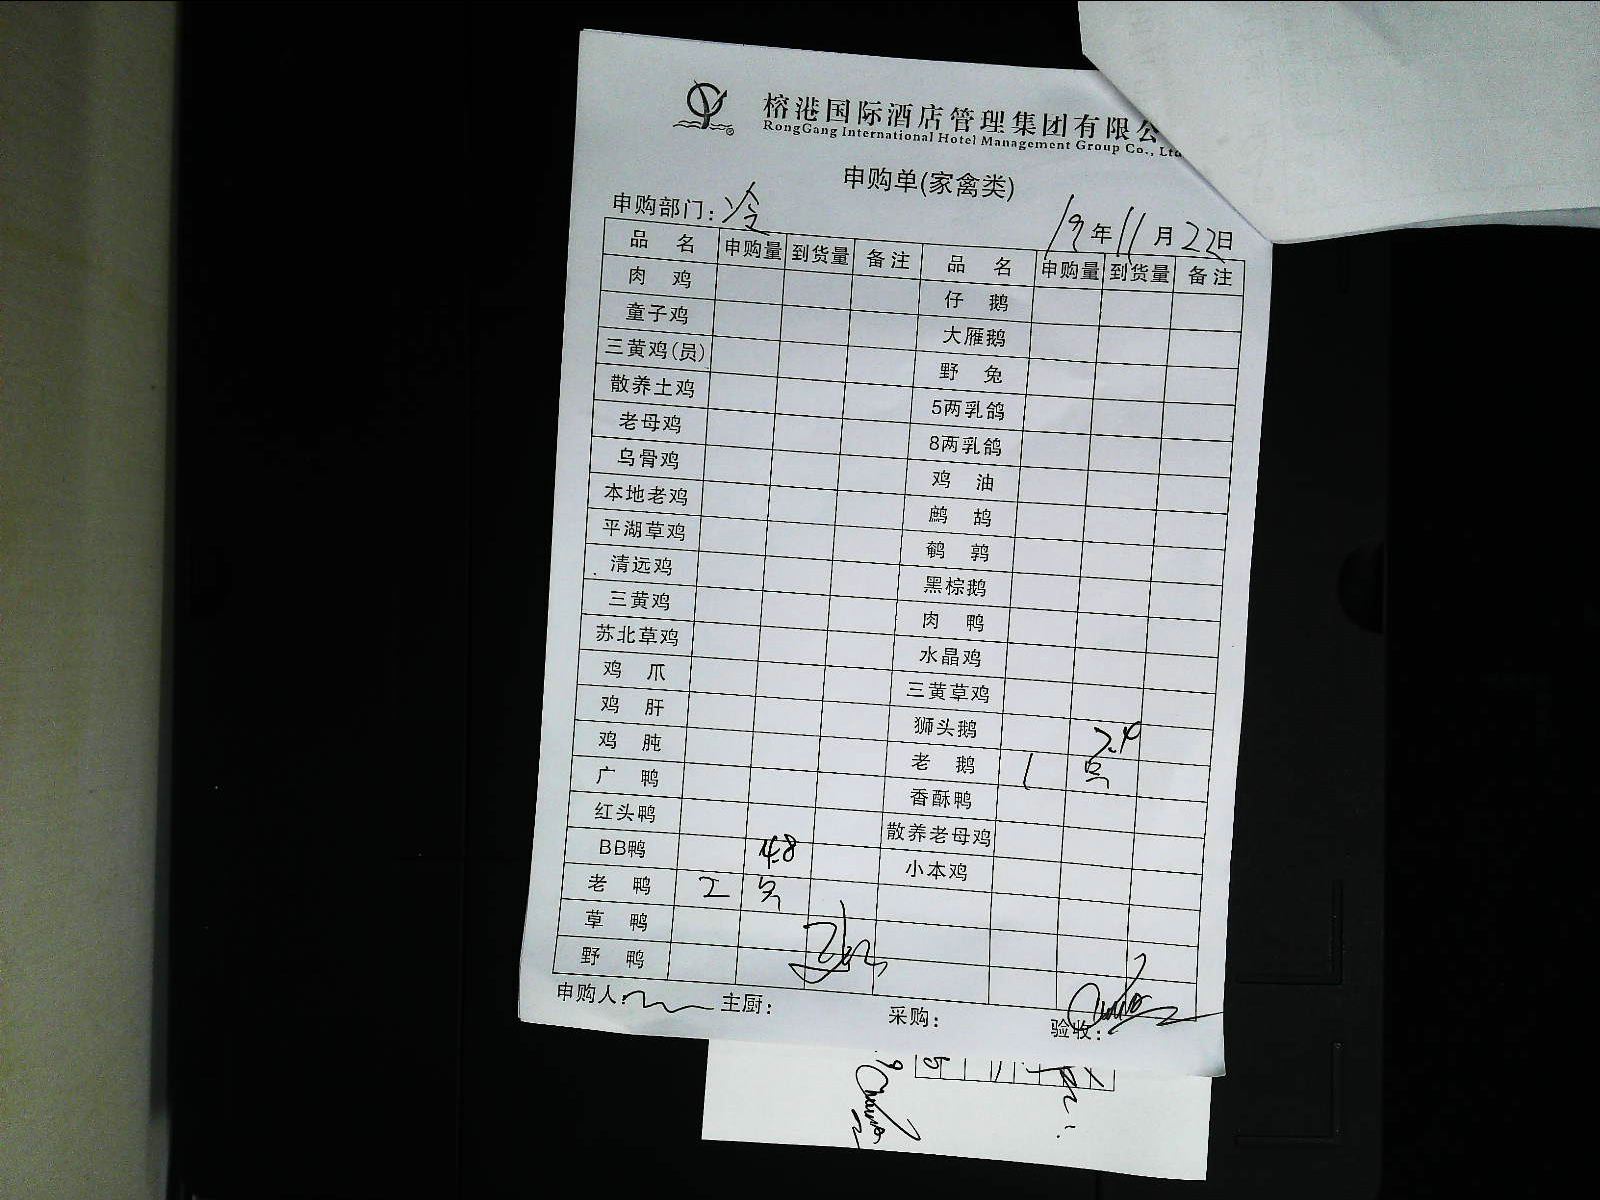 榕港国际酒店管理集团有限公
RongGang International Hotel Management Group Co., Ltd
申购单(家禽类)
申购部门：冷
19年11月22日
品 名 申购量 到货量 备注 品 名 申购量 到货量 备注
肉 鸡 仔 鹅
童子鸡 大雁鹅
三黄鸡(员) 野 兔
散养土鸡 5两乳鸽
老母鸡 8两乳鸽
乌骨鸡 鸡 油
本地老鸡 鹧 鸪
平湖草鸡 鹌 鹑
清远鸡 黑棕鹅
三黄鸡 肉 鸭
苏北草鸡 水晶鸡
鸡 爪 三黄草鸡
鸡 肝 狮头鹅
鸡 肫 老 鹅 1 7.4
广 鸭 香酥鸭
红头鸭 散养老母鸡
BB鸭 小本鸡
老 鸭 2 4.8
草 鸭
野 鸭
申购人： 主厨： 采购： 验收：